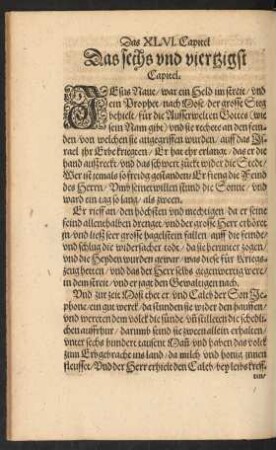 Das XLVI. Capitel
Das sechs vnd viertzigst
Capitel.
JEsus Naue/ war ein Held im streit/ vnd
ein Prophet/ nach Mose/ der grosse Sieg
behielt/ für die Ausserwelten Gottes/ wie
sein Nam gibt/ vnd sie rechete an den fein
den/ von welchen sie angegriffen wurden/ auff das Js
rael jhr Erbe kriegten/ Er hat ehr erlangt/ das er die
hand außreckt/ vnd das schwert zückt wider die Stedt/
Wer ist jemals so freidig gestanden/ Er fieng die Feind
des Herrn/ Vmb seinet willen stund die Sonne/ vnd
ward ein tag so lang/ als zween.
Er rieff an/ den höchsten vnd mechtigen/ da er seine
feind allenthalben drenget/ vnd der grosse Herr erhöret
jn/ vnd ließ seer grosse hagelstein fallen/ auff die feinde/
vnd schlug die widersacher todt/ da sie herunter zogen/
vnd die Heyden wurden gewar/ was diese für Kriegs
zeug hetten/ vnd das der Herr selbs gegenwertig were/
in dem streit/ vnd er jagt den Gewaltigen nach.
Vnd zur zeit Mosi thet er vnd Caleb der Son Je
phone/ ein gut werck/ da stunden sie wider den hauffen/
vnd wereten dem volck die sünde/ vñ stilleten die schedli
chen auffrhur/ darumb sind sie zween allein erhalten/
vnter sechs hundert tausent Mañ vnd haben das volck
zum Erb gebracht/ ins land/ da milch vnd honig innen
fleusset/ Vnd der Herr erhielt den Caleb/ bey leibs kreff
ten/